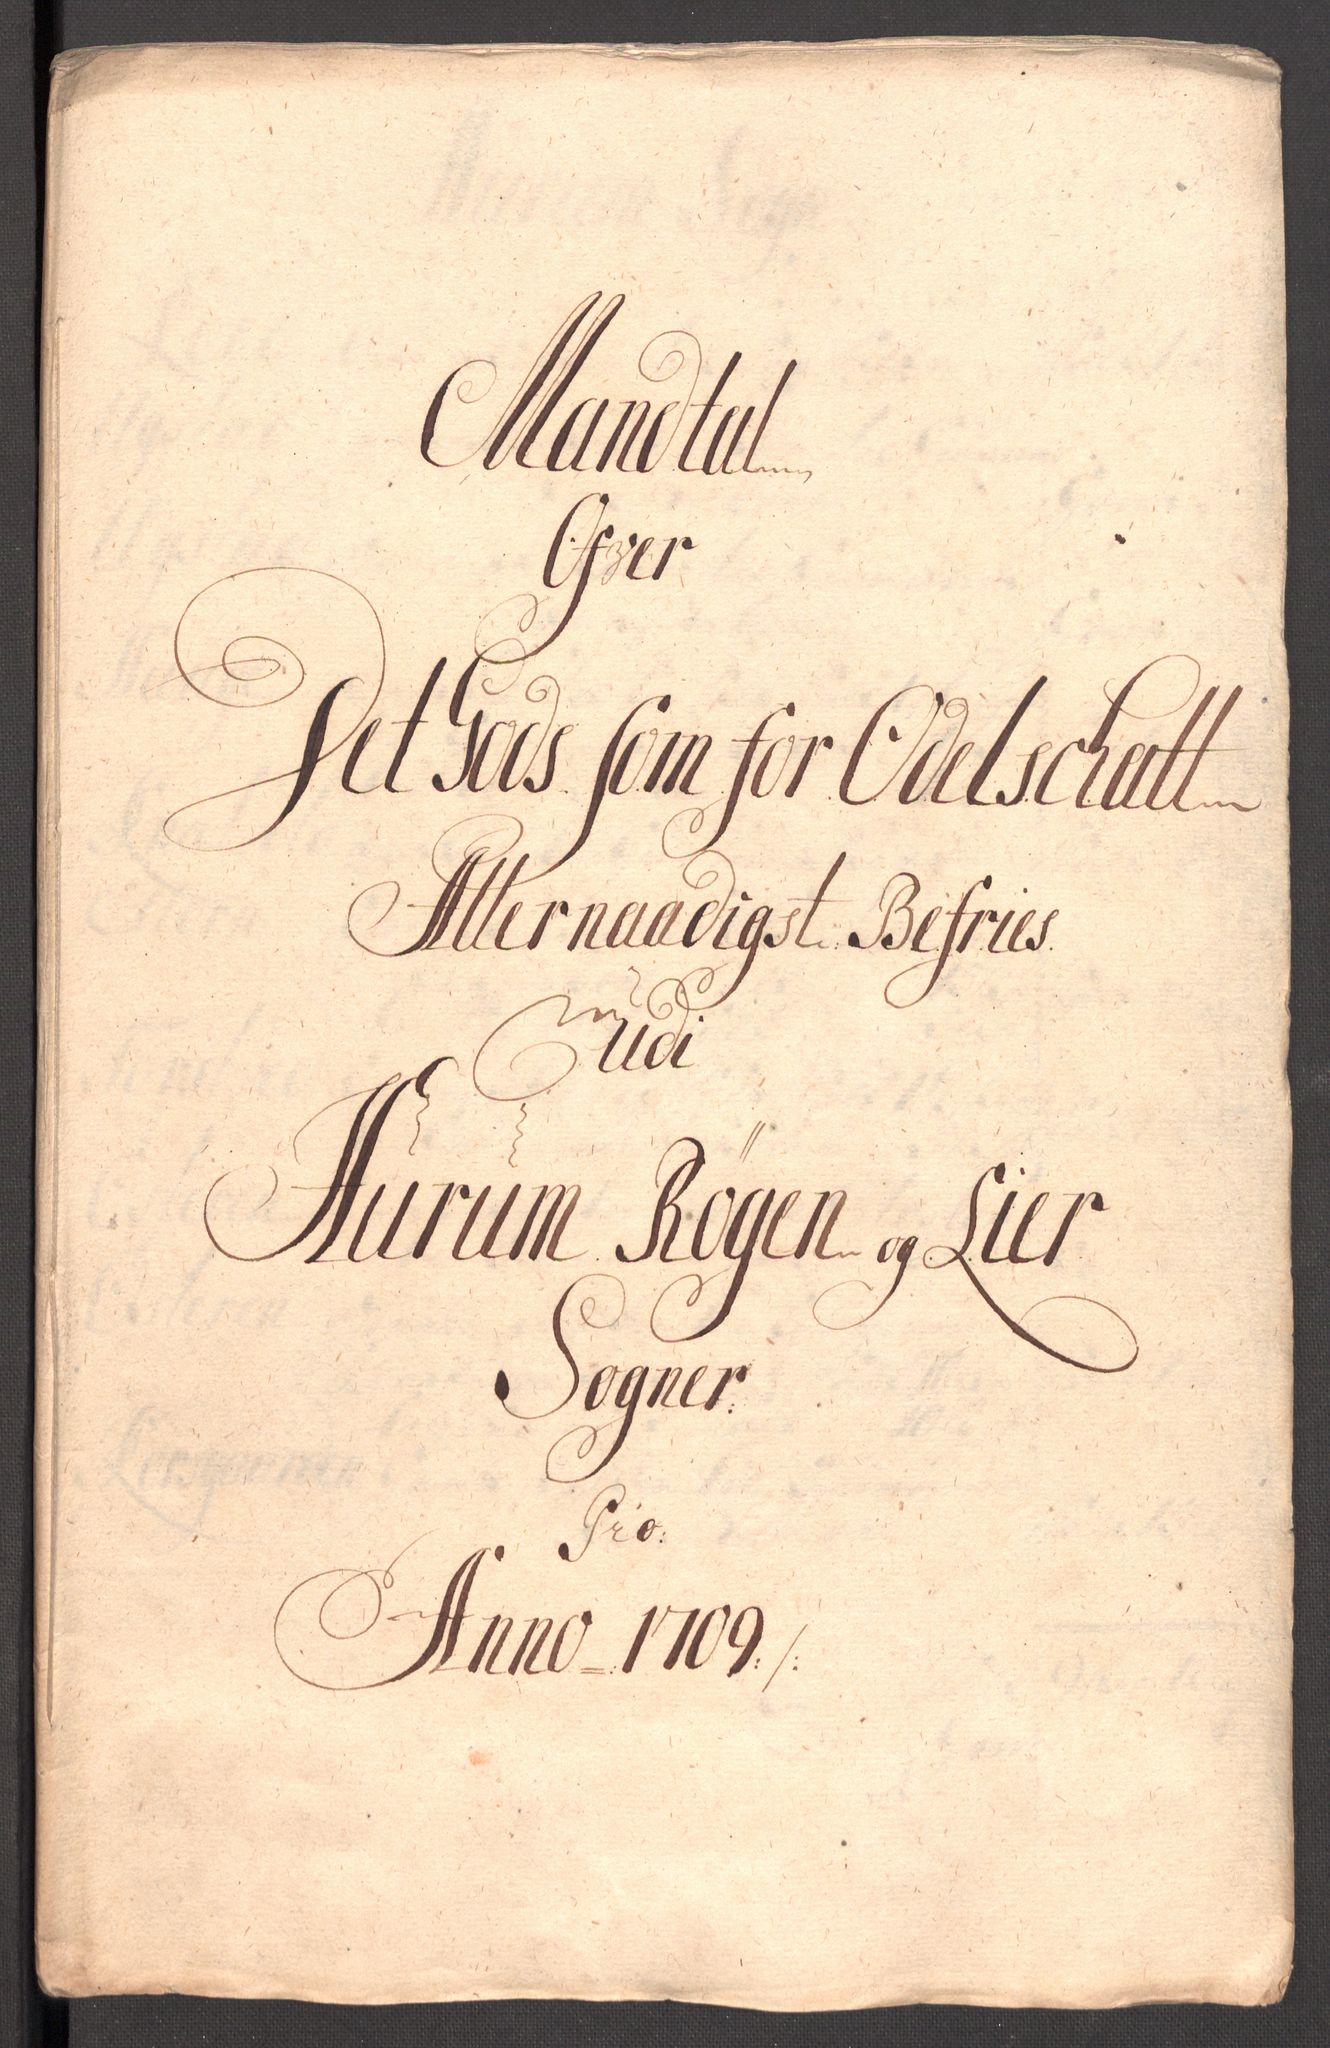 Mandtal
Ofver
Det Gods som for Odelschatt
Allernaadigst Befries
udi
Hurum Røgen og Lier
Sogner:
Pro:
Anno 1709./.